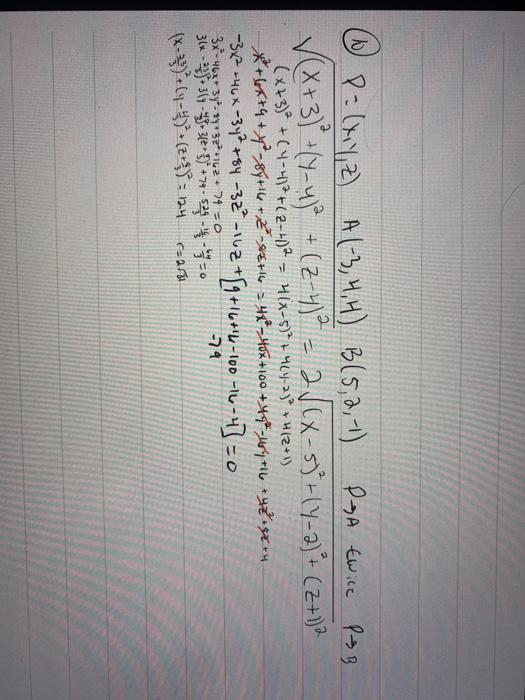 (h) P=(x,y,z) A(-3,4,4) B(5,2,-1) P→A twice P→B
√((x+3)²+(y-4)²+(z-4)²) = 2√((x-5)²+(y-2)²+(z+1)²)
(x+3)²+(y-4)²+(z-4)² = 4(x-5)²+4(y-2)²+4(z+1)
x²+6x+9+y²-8y+16+z²-8z+16 = 4x²-40x+100+4y²-16y+16+4z²+8z+4
-3x²+46x-3y²+8y-3z²-16z+[9+16+16-100-16-4]=0
-79
3x²-46x+3y²-8y+3z²+16z+79=0
3(x-23/3)²+3(y-4/3)²+3(z+8/3)²+79-529/3-16/3-64/3=0
(x-23/3)²+(y-4/3)²+(z+8/3)²=124